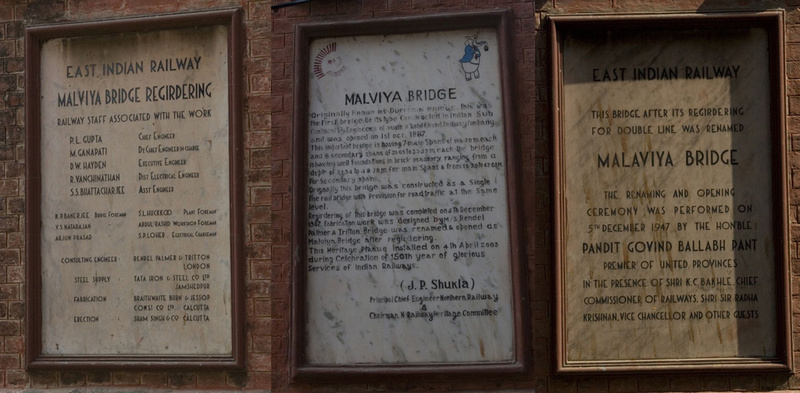 EAST INDIAN RAILWAY
MALVIYA BRIDGE REGIRDERING
RAILWAY STAFF ASSOCIATED WITH THE WORK
P.L. GUPTA CHIEF ENGINEER
M. GANAPATI DY. CHIEF ENGINEER IN CHARGE
D.W. HAYDEN EXECUTIVE ENGINEER
R. VANCHINATHAN DIST ELECTRICAL ENGINEER
S.S. BHATTACHARJEE ASST ENGINEER
BRIDGE FOREMAN PLANT FOREMAN
V.S. NATARAJAN ABDUL RASHID WORKSHOP FOREMAN
ARJUN PRASAD S.P. LOHER ELECTRICAL CHARGEMAN
CONSULTING ENGINEER RENDEL PALMER & TRITTON
LONDON
STEEL SUPPLY TATA IRON & STEEL CO LTD
JAMSHEDPUR
FABRICATION BRAITHWAITE BURN & JESSOP
CONST CO LTD CALCUTTA
ERECTION SHAM SINGH & CO CALCUTTA
MALVIYA BRIDGE
Originally Known as Dufferin Bridge, this was
the first bridge of its type Constructed in Indian Sub
and was opened on 1st Oct. 1887
This important bridge is having 7 main Spans of
and 8 secondary spans of each. The bridge
is having well foundations in brick masonry ranging from a
depth of
for Secondary spans.
Originally this bridge was constructed as a Single
line rail bridge with Provision for road traffic at the Same
level.
Regirdering of this bridge was completed on 5th December
1947. Fabrication work was designed by M/s. Rendel
Palmer & Tritton. Bridge was renamed & opened as
Malviya Bridge after regirdering.
This Heritage Plaque Installed on 4th April 2003
during Celebration of 150th year of glorious
Services of Indian Railways.
(J. P. Shukla)
Principal Chief Engineer Northern Railway
&
Chairman, N. Railway Heritage Committee
EAST INDIAN RAILWAY
THIS BRIDGE AFTER ITS REGIRDERING
FOR DOUBLE LINE WAS RENAMED
MALAVIYA BRIDGE
THE RENAMING AND OPENING
CEREMONY WAS PERFORMED ON
5TH DECEMBER 1947 BY THE HON'BLE
PANDIT GOVIND BALLABH PANT
PREMIER OF UNITED PROVINCES
IN THE PRESENCE OF SHRI K.C. BAKHLE, CHIEF
COMMISSIONER OF RAILWAYS, SHRI SIR RADHA
KRISHNAN, VICE CHANCELLOR AND OTHER GUESTS